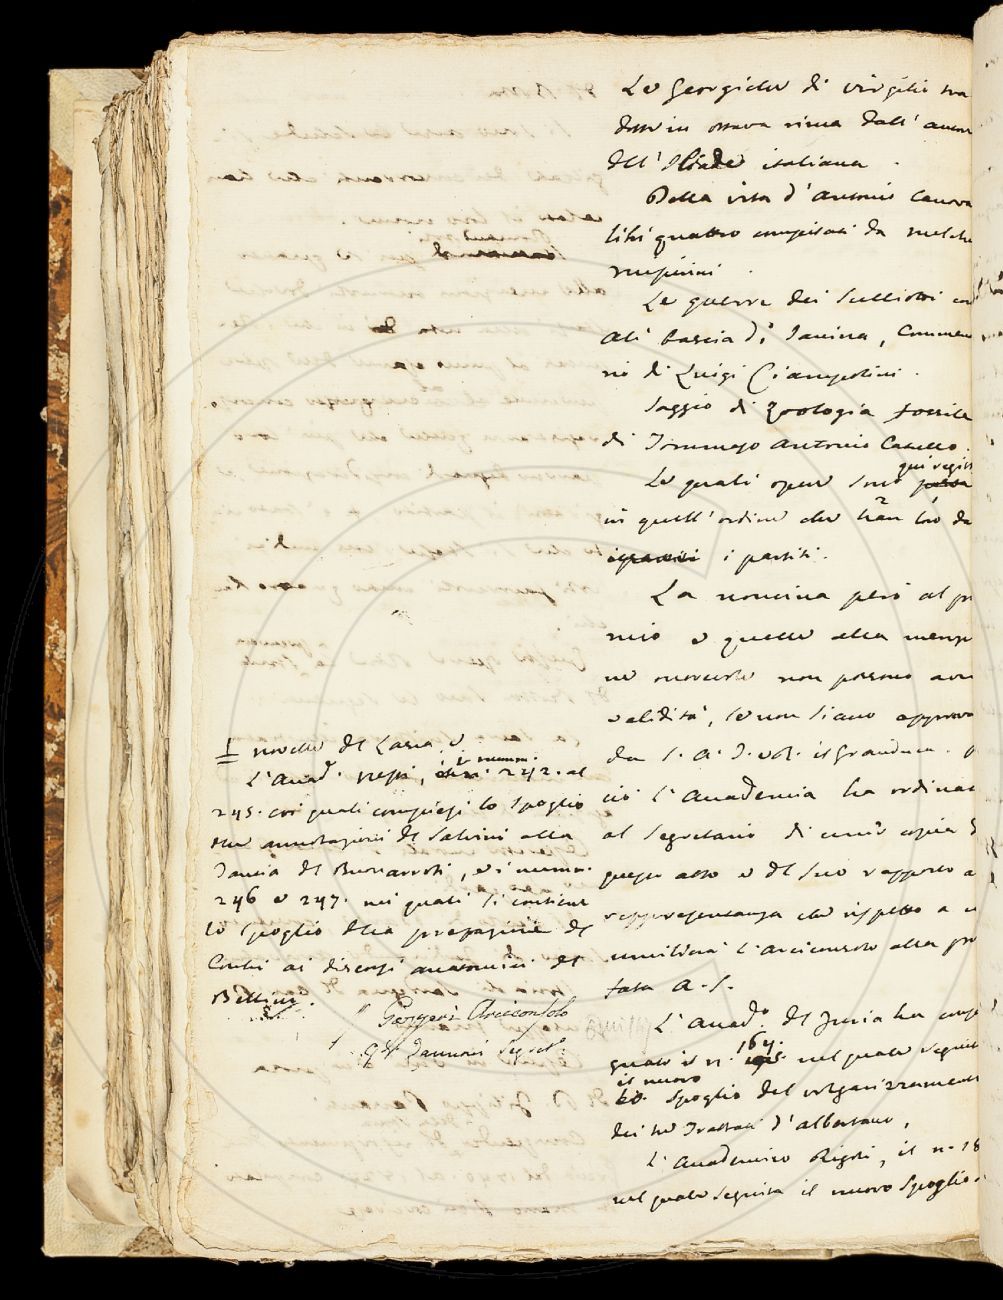 Le Georgiche di Virgilio tra
dotte in ottava rima dall' autore
dell' Iliade italiana .
Della vita d' Antonio Canova
libri quattro compilati da Melchior
Missirini .
Le guerre dei Sulliotti con
Alì Bascià di Janina , Commen
rii di Luigi Ciampolini .
Saggio di Zoologia fossile
di Tommaso Antonio Catullo .
qui regis
Le quali opere sono
in quell' ordine che han loro da
i partiti .
La nomina però al pr
mio e quelle alla menzi
ne onorevole non possono aver
validità , se non siano approva
da S. A. I. e R. il Granduca .
ciò l' Accademia ha ordinat
al Segretario di unir copia
questo atto e del suo rapporto a
rappresentanza che rispetto a
umilierà l' Arciconsolo alla pre
fata A. S.
L' Accad.o del Furia ha comp
164.
quato il n. nel quale seguit
il nuovo
spoglio del volgarizzamento
dei tre Trattati d' Albertano ,
L' Accademico Rigoli , il n. 18
nel quale seguita il nuovo spoglio
1 novelle del Lasca , e
i numeri
L' Accad. , 242. al
245. coi quali compiesi lo spoglio
delle annotazioni del Salvini alla
Tancia del Buonarroti , e i numeri
246 e 247. nei quali si contiene
lo spoglio della prefazione del
Cocchi ai discorsi anatomici del
Bellini .
Arciconsolo
G. B. Zannoni Segret.